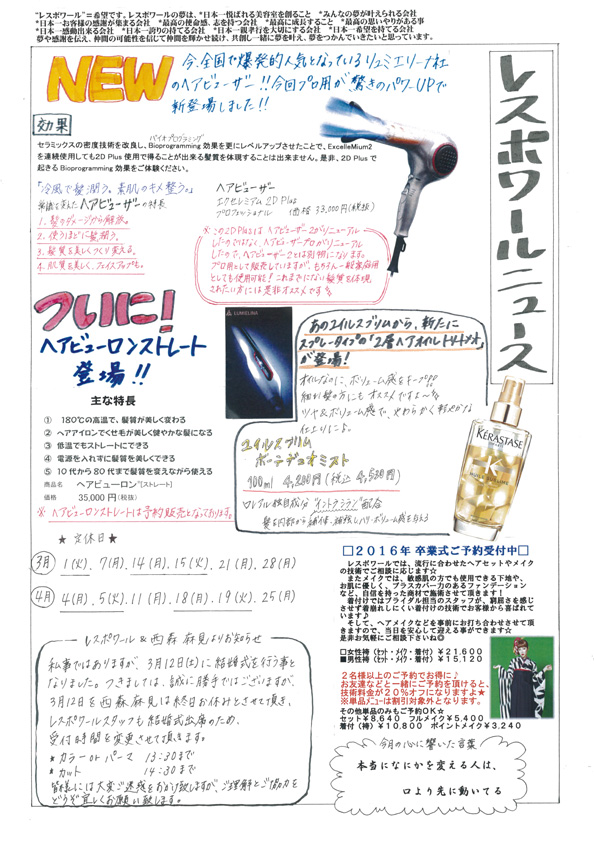 "レスポワール"=希望です。"レスポワールの夢は、*日本一悦ばれる美容室を創ること　*みんなの夢が叶えられる会社
*日本一お客様の感謝が集まる会社　*最高の使命感、志を持つ会社　*最高に成長すること　*最高の思いやりがある事
*日本一感動出来る会社　*日本一誇りの持てる会社　*日本一親孝行を大切にする会社　*日本一希望を持てる会社
夢や感謝を伝え、仲間の可能性を信じて仲間を輝かせ続け、共創し一緒に夢を叶え、夢をつかんでいきたいと思っています。
レスポワールニュース
NEW
今、全国で爆発的人気となっているリュミエリーナ社
のヘアビューザー!!今回プロ用が驚きのパワーUPで
新登場しました!!
効果
バイオプログラミング
セラミックスの密度技術を改良し、Bioprogramming 効果を更にレベルアップさせたことで、ExcelleMium2
を連続使用しても2D Plus 使用で得ることが出来る髪質を体現することは出来ません。是非、2D Plus で
起きる Bioprogramming 効果をご体験ください。
「冷風で髪潤う。素肌のキメ整う。」
常識を変えたヘアビューザーの特長
1. 髪のダメージから解放。
2. 使うほどに髪潤う。
3. 髪質を美しくつくり変える。
4. 肌質も美しく、フェイスアップも。
ヘアビューザー
エクセレミアム 2D Plus
プロフェッショナル　価格 38,000円(税抜)
※この2DPlusは ヘアビューザー2がリニューアル
したのではなく、ヘアビューザープロがリニューアル
したので、ヘアビューザー2とは別物になります。
プロ用として販売していますが、もちろん一般家庭用
としても使用可能!これまでにない髪質を体現
されたい方には是非オススメです
ついに!
ヘアビューロンストレート
登場!!
主な特長
① 180℃の高温で、髪質が美しく変わる
② ヘアアイロンでくせ毛が美しく健やかな髪になる
③ 低温でもストレートにできる
④ 電源を入れずに髪質を美しくできる
⑤ 10代から80代まで髪質を変えながら使える
商品名　ヘアビューロン[ストレート]
価格　35,000円(税抜)
※ ヘアビューロンストレートは予約販売となっております。
LUMIELINA
あのユイルスブリムから、新たに
スプレータイプの「2層ヘアオイルトリートメント」
が登場!
オイルなのに、ボリューム感をキープ!!
細い髪の方にもオススメですよ〜
ツヤ&ボリューム感で、やわらかく軽やかな
仕上りに
ユイルスブリム
ボーテデュオミスト
100ml 4,200円(税込 4,536円)
ロレアル独自成分"イントラシラン"配合
髪を内部から補修、補強しハリ・ボリューム感を与える
KÉRASTASE
★ 定休日 ★
3月 1(火)、7(月)、14(月)、15(火)、21(月)、28(月)
4月 4(月)、5(火)、11(月)、18(月)、19(火)、25(月)
レスポワール & 西森麻見よりお知らせ
私事ではありますが、3月12日(土)に結婚式を行う事と
なりました。つきましては、誠に勝手ではございますが、
3月12日を西森麻見は終日お休みとさせて頂き、
レスポワールスタッフも結婚式出席のため、
受付時間を変更させて頂きます。
*カラー or パーマ　13:30まで
*カット　14:30まで
皆様には大変ご迷惑をおかけ致しますが、ご理解とご協力を
どうぞ宜しくお願い致します。
□2016年 卒業式ご予約受付中□
レスポワールでは、流行に合わせたヘアセットやメイク
の技術でご相談に応じます☆
またメイクでは、敏感肌の方でも使用できる下地や、
お肌に優しく、プラスカバー力のあるファンデーション
など、自信を持った商材で施術させて頂きます!
着付けではブライダル担当のスタッフが、窮屈さを感じ
させず着崩れしにくい着付けの技術でお客様から喜ばれて
います♪
そして、ヘアメイクなどを事前にお打ち合わせさせて頂
きますので、当日を安心して迎える事ができます☆
是非お気軽にご相談下さいね◎
□女性袴(セット・メイク・着付) ￥21,600
■男性袴(セット・メイク・着付) ￥15,120
2名様以上のご予約でお得に♪
お友達などと一緒にご予約を頂けると、
技術料金が20%オフになりますよ★
※単品メニューは割引対象外となります。
その他単品のみもご予約OK☆
セット￥8,640　フルメイク￥5,400
着付(袴)￥10,800　ポイントメイク￥3,240
今月の心に響いた言葉
本当になにかを変える人は、
口より先に動いてる